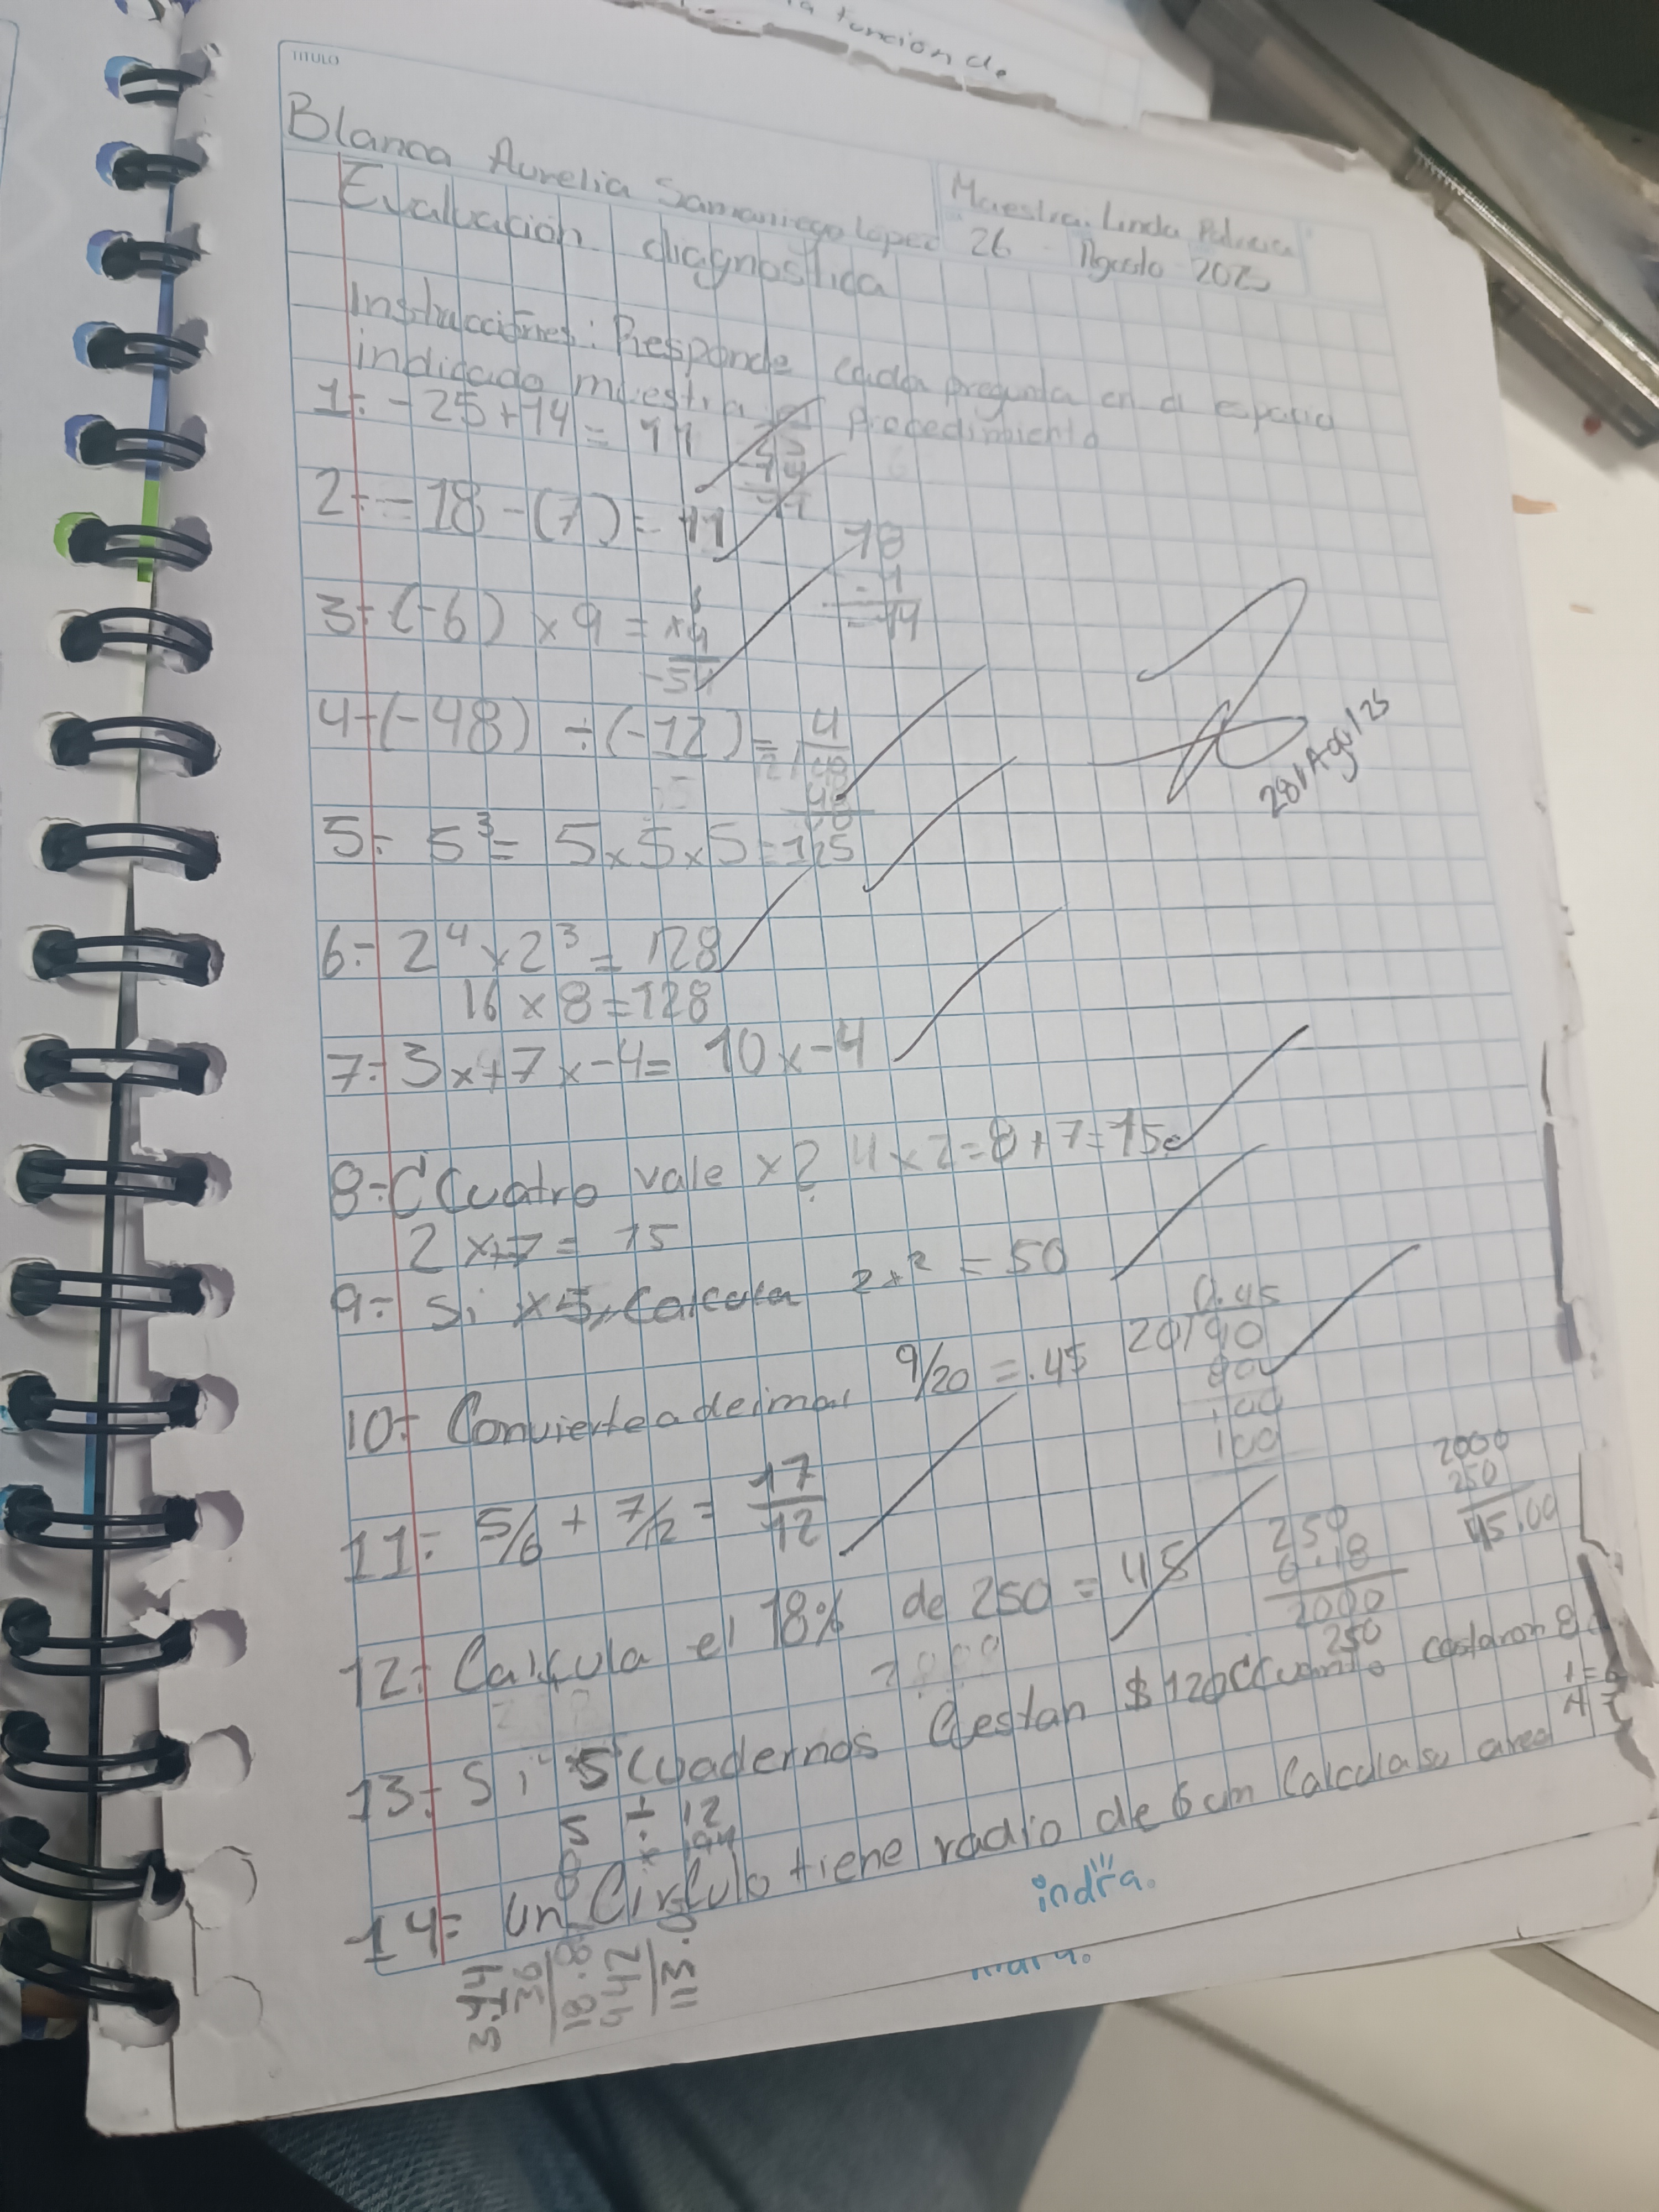 a función de
TITULO
Blanca Aurelia Samaniego López
Maestra. Linda
Evaluación diagnostica
26 Agosto 2025
Instrucciones: Responde cada pregunta en el espacio
indicado muestra el procedimiento
1.- -25+14 = 11
25
-14
-11
2.- -18-(7)= 11
18
-7
-11
3.- (-6) x 9 =
6
x9
-54
4-(-48) ÷(-12)=
4
12/48
48
00
28/Ago/25
5.- 5³= 5x5x5=125
6.- 2⁴ x 2³ = 128
16 x 8 =128
7.- 3x+7x-4= 10x-4
8-¿Cuatro vale x? 4x2=8+7=15
2x+7= 15
9.- Si x5, Calcula 2x² = 50
10.- Convierte a deimal 9/20 = .45
0.45
20/90
80
100
100
11.- 5/6 + 7/12 = 17/12
12.- Calcula el 18% de 250 = 45
250
0.18
2000
250
2000
250
45.00
13.- Si 5 Cuadernos Cuestan $120 ¿Cuanto costaron 8
5 ÷ 12
8 x 194
14.- Un Cirfulo tiene radio de 6 cm Calcula su area
3.14
36
18.8
942
113.
indra.